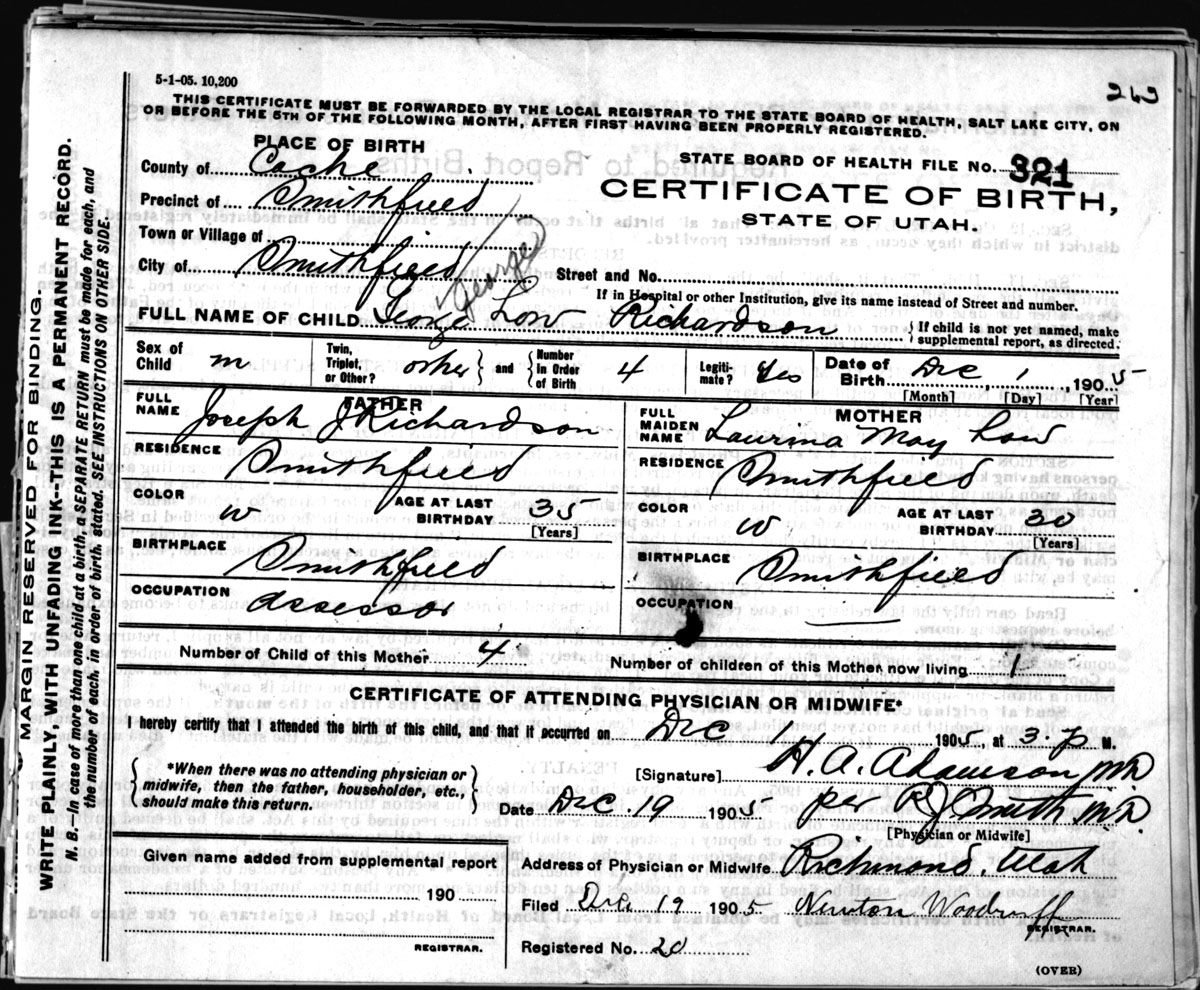 5-1-05. 10,200
THIS CERTIFICATE MUST BE FORWARDED BY THE LOCAL REGISTRAR TO THE STATE BOARD OF HEALTH, SALT LAKE CITY, ON
OR BEFORE THE 5TH OF THE FOLLOWING MONTH, AFTER FIRST HAVING BEEN PROPERLY REGISTERED.
PLACE OF BIRTH
County of Cache
Precinct of Smithfield
Town or Village of
City of Smithfield
George
STATE BOARD OF HEALTH FILE No. 321
CERTIFICATE OF BIRTH,
STATE OF UTAH.
Street and No.
If in Hospital or other Institution, give its name instead of Street and number.
FULL NAME OF CHILD George Low Richardson
If child is not yet named, make
supplemental report, as directed.
Sex of Child m
Twin, Triplet, or Other? other and Number in Order of Birth 4
Legitimate? Yes
Date of Birth Dec 1, 1905
[Month] [Day] [Year]
FATHER
FULL NAME Joseph J Richardson
RESIDENCE Smithfield
COLOR W AGE AT LAST BIRTHDAY 35
[Years]
BIRTHPLACE Smithfield
OCCUPATION Assessor
MOTHER
FULL MAIDEN NAME Laurina May Low
RESIDENCE Smithfield
COLOR W AGE AT LAST BIRTHDAY 30
[Years]
BIRTHPLACE Smithfield
OCCUPATION
Number of Child of this Mother 4
Number of children of this Mother now living 1
CERTIFICATE OF ATTENDING PHYSICIAN OR MIDWIFE*
I hereby certify that I attended the birth of this child, and that it occurred on Dec 1 1905, at 3. P M.
*When there was no attending physician or
midwife, then the father, householder, etc.,
should make this return.
[Signature] H. A. Adamson MD
Date Dec. 19 1905 per R J Smith M.D.
[Physician or Midwife]
Given name added from supplemental report
190
REGISTRAR.
Address of Physician or Midwife Richmond, Utah
Filed Dec. 19 1905 Newton Woodruff
REGISTRAR.
Registered No. 20
(OVER)
MARGIN RESERVED FOR BINDING.
WRITE PLAINLY, WITH UNFADING INK--THIS IS A PERMANENT RECORD.
N. B. In case of more than one child at a birth, a SEPARATE RETURN must be made for each, and
the number of each, in order of birth, stated. SEE INSTRUCTIONS ON OTHER SIDE.